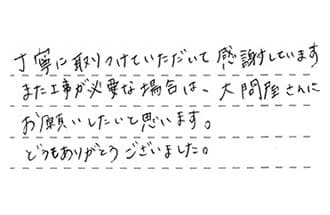 丁寧に取りつけていただいて感謝しています
また工事が必要な場合は、大問屋さんに
お願いしたいと思います。
どうもありがとうございました。